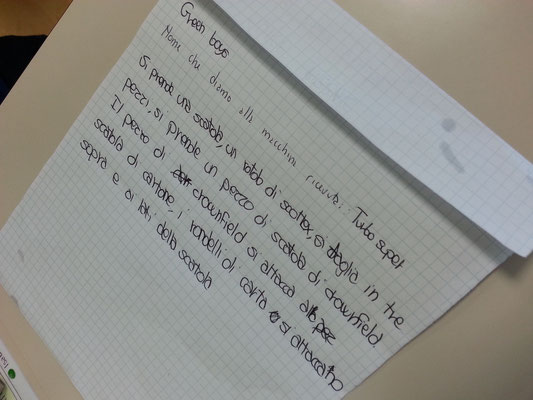 Green boys
Nome che diamo alla macchina ricevente: Turbo super
Si prende una scatola, un rotolo di scottex, si taglia in tre
pezzi, si prende un pezzo di scatola di crownfield.
Il pezzo di crownfield si attacca alla
scatola di cartone, i rondelli di carta si attaccano
sopra e ai lati della scatola